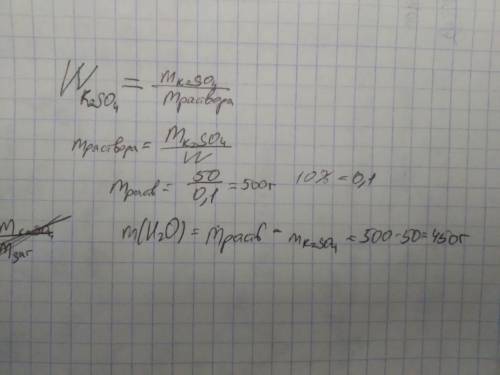 W K₂SO₄ = m K₂SO₄ / m раствора
m раствора = m K₂SO₄ / W
m расв = 50 / 0,1 = 500г 10% = 0,1
m(H₂O) = m расв - m K₂SO₄ = 500-50=450г